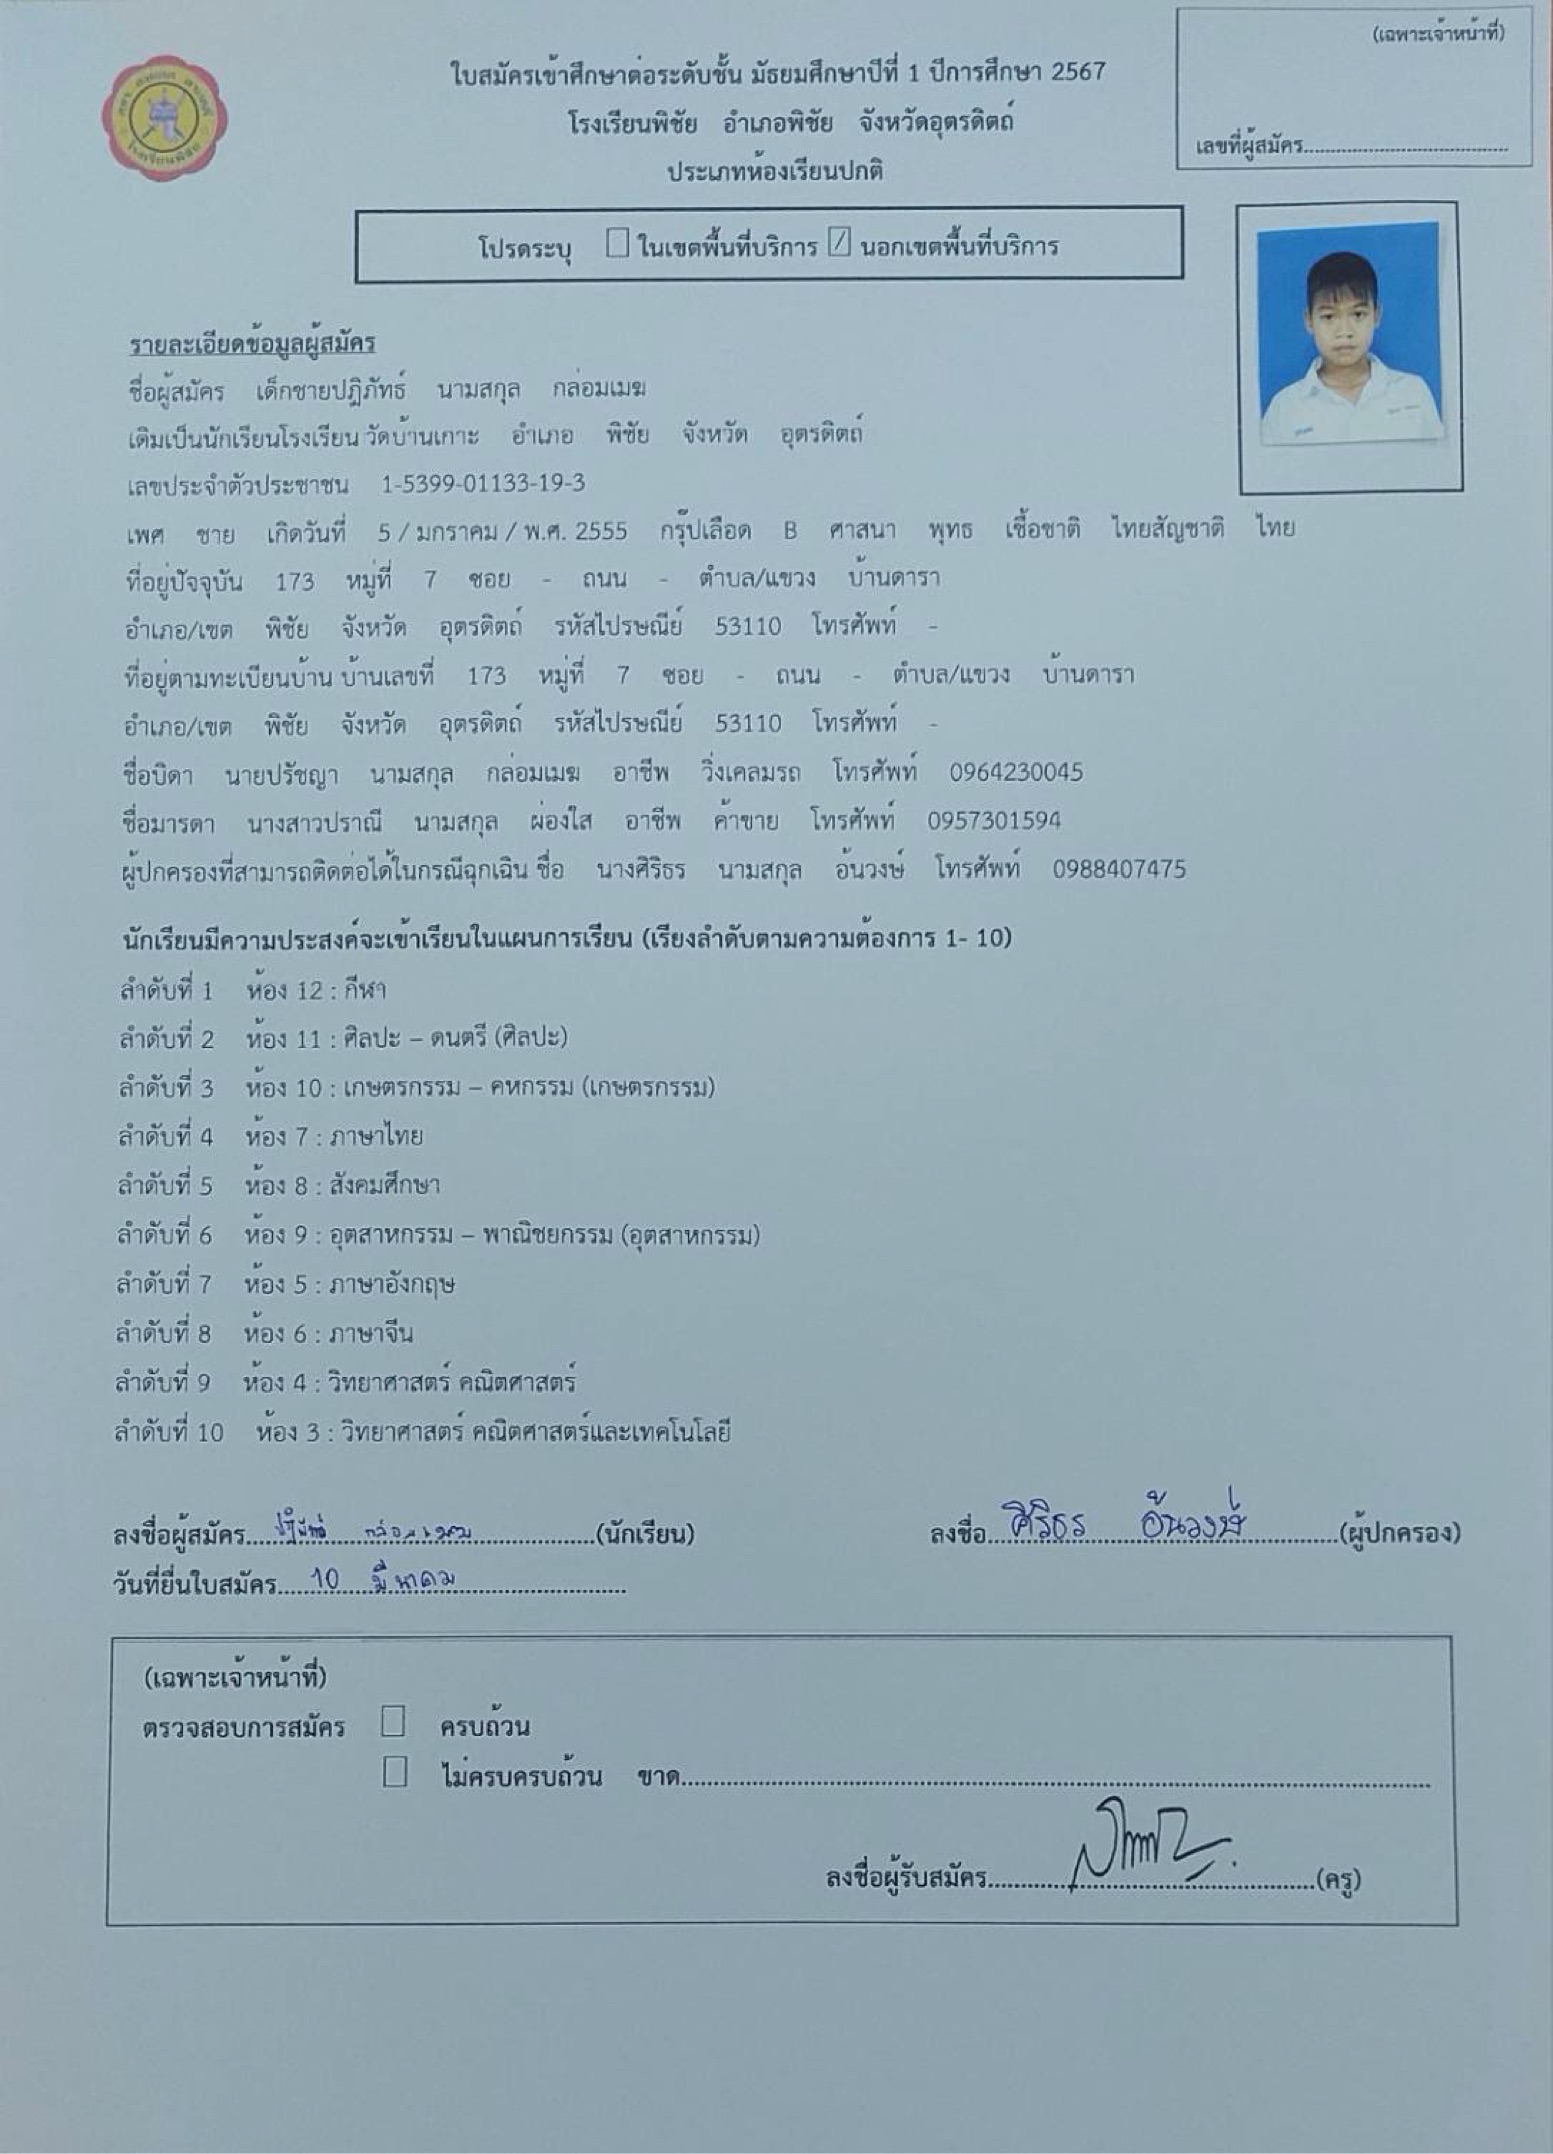 (เฉพาะเจ้าหน้าที่)
เลขที่ผู้สมัคร
ใบสมัครเข้าศึกษาต่อระดับชั้น มัธยมศึกษาปีที่ 1 ปีการศึกษา 2567
โรงเรียนพิชัย อำเภอพิชัย จังหวัดอุตรดิตถ์
ประเภทห้องเรียนปกติ
โรงเรียนพิชัย
โปรดระบุ ☐ ในเขตพื้นที่บริการ ☑ นอกเขตพื้นที่บริการ
รายละเอียดข้อมูลผู้สมัคร
ชื่อผู้สมัคร เด็กชายปฏิภัทธ์ นามสกุล กล่อมเมฆ
เดิมเป็นนักเรียนโรงเรียน วัดบ้านเกาะ อำเภอ พิชัย จังหวัด อุตรดิตถ์
เลขประจำตัวประชาชน 1-5399-01133-19-3
เพศ ชาย เกิดวันที่ 5 / มกราคม / พ.ศ. 2555 กรุ๊ปเลือด B ศาสนา พุทธ เชื้อชาติ ไทยสัญชาติ ไทย
ที่อยู่ปัจจุบัน 173 หมู่ที่ 7 ซอย - ถนน - ตำบล/แขวง บ้านดารา
อำเภอ/เขต พิชัย จังหวัด อุตรดิตถ์ รหัสไปรษณีย์ 53110 โทรศัพท์ -
ที่อยู่ตามทะเบียนบ้าน บ้านเลขที่ 173 หมู่ที่ 7 ซอย - ถนน - ตำบล/แขวง บ้านดารา
อำเภอ/เขต พิชัย จังหวัด อุตรดิตถ์ รหัสไปรษณีย์ 53110 โทรศัพท์ -
ชื่อบิดา นายปรัชญา นามสกุล กล่อมเมฆ อาชีพ วิ่งเคลมรถ โทรศัพท์ 0964230045
ชื่อมารดา นางสาวปราณี นามสกุล ผ่องใส อาชีพ ค้าขาย โทรศัพท์ 0957301594
ผู้ปกครองที่สามารถติดต่อได้ในกรณีฉุกเฉิน ชื่อ นางศิริธร นามสกุล อ้นวงษ์ โทรศัพท์ 0988407475
นักเรียนมีความประสงค์จะเข้าเรียนในแผนการเรียน (เรียงลำดับตามความต้องการ 1- 10)
ลำดับที่ 1 ห้อง 12 : กีฬา
ลำดับที่ 2 ห้อง 11 : ศิลปะ – ดนตรี (ศิลปะ)
ลำดับที่ 3 ห้อง 10 : เกษตรกรรม – คหกรรม (เกษตรกรรม)
ลำดับที่ 4 ห้อง 7 : ภาษาไทย
ลำดับที่ 5 ห้อง 8 : สังคมศึกษา
ลำดับที่ 6 ห้อง 9 : อุตสาหกรรม – พาณิชยกรรม (อุตสาหกรรม)
ลำดับที่ 7 ห้อง 5 : ภาษาอังกฤษ
ลำดับที่ 8 ห้อง 6 : ภาษาจีน
ลำดับที่ 9 ห้อง 4 : วิทยาศาสตร์ คณิตศาสตร์
ลำดับที่ 10 ห้อง 3 : วิทยาศาสตร์ คณิตศาสตร์และเทคโนโลยี
ลงชื่อผู้สมัคร ปฏิภัทธ์ กล่อมเมฆ (นักเรียน) ลงชื่อ ศิริธร อ้นวงษ์ (ผู้ปกครอง)
วันที่ยื่นใบสมัคร 10 มีนาคม
(เฉพาะเจ้าหน้าที่)
ตรวจสอบการสมัคร ☐ ครบถ้วน
☐ ไม่ครบครบถ้วน ขาด
ลงชื่อผู้รับสมัคร (ครู)